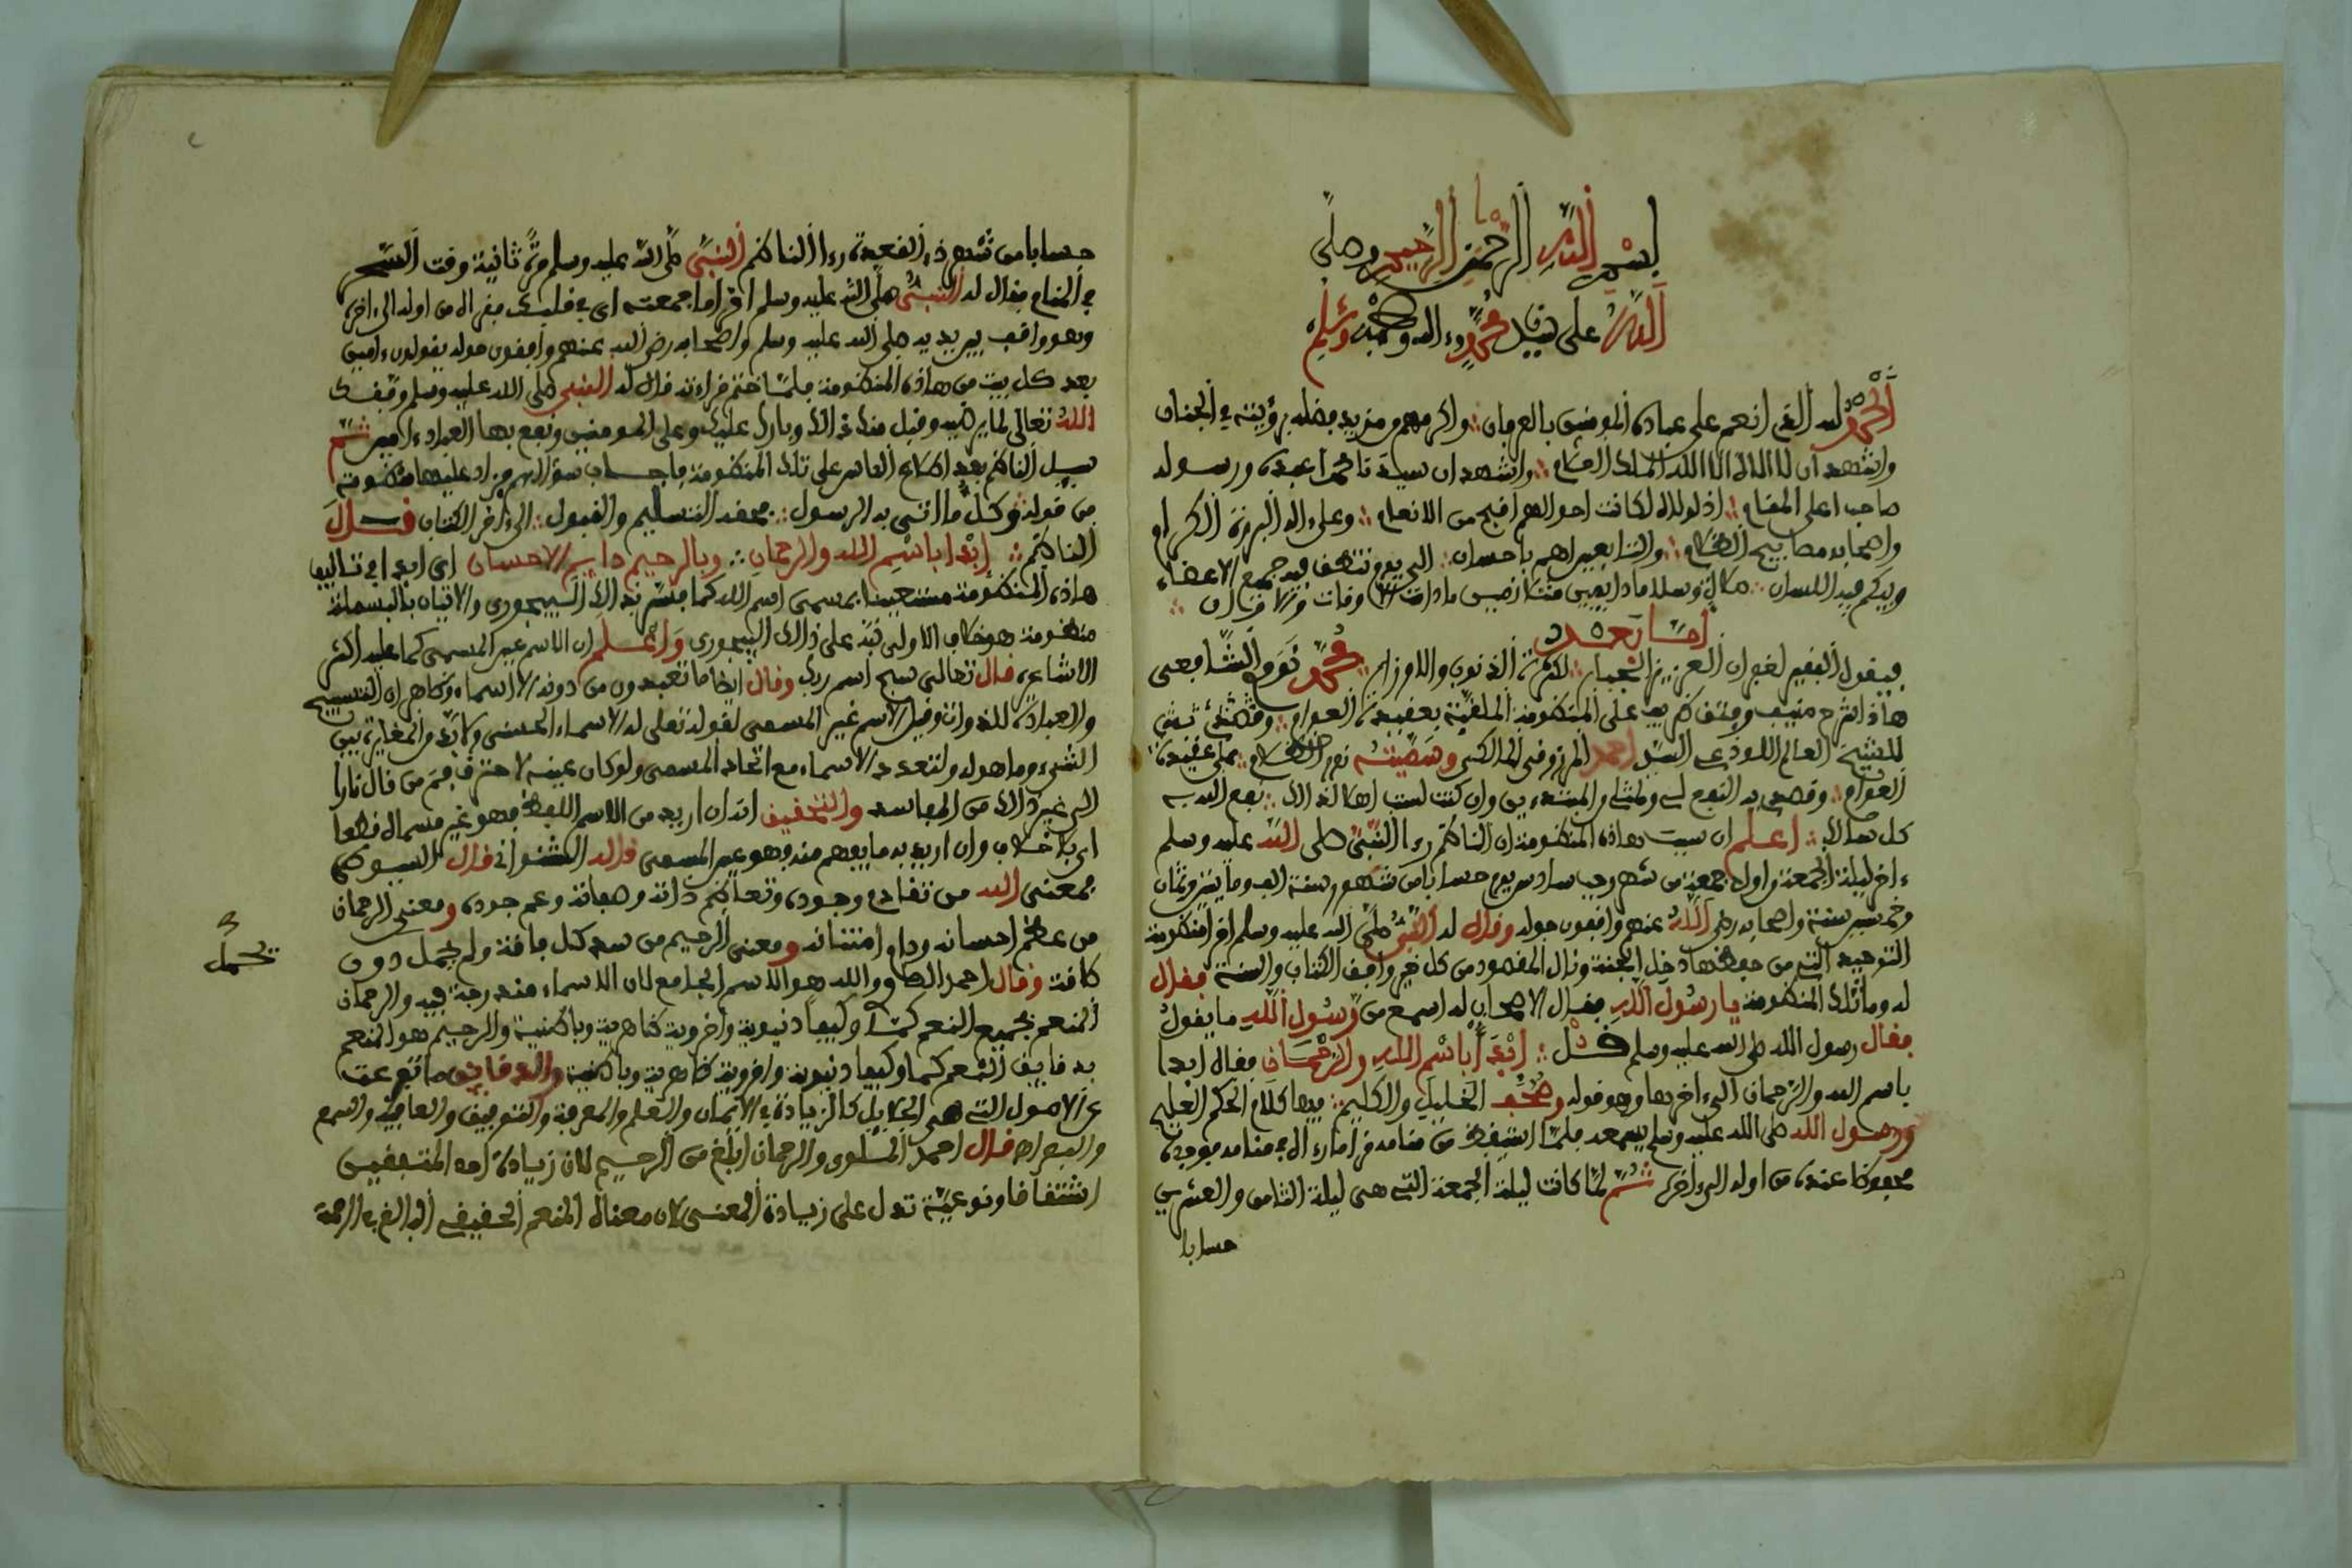 بسم الله الرحمن الرحيم وصلى
الله على سيدنا محمد وءاله وصحبه وسلم
الحمد لله الذي انعم على عباده المومنين بالعرفان واكرمهم من مزيد فضله برؤيته في الجنان
واشهد ان لا اله الا الله الملك العلام واشهد ان سيدنا محمدا عبده ورسوله
صاحب اعلى المقام اذ لولاه لكانت احوالهم اقبح من الانعام وعلى ءاله البررة الكرام
واصحابه مصابيح الظلام والتابعين لهم باحسان الى يوم تنطق فيه جميع الاعضاء
ويبكم فيه اللسان صلاة وسلاما دايمين متلازمين مادامت الاوقات والازمان
اما بعد
فيقول الفقير لغفران العزيز الجبار لكثرة الذنوب والاوزار محمد نووي الشافعي
هاذا شرح منيف على المنظومة الملقبة بعقيدة العوام
للشيخ العالم اللوذعي السيد احمد المرزوقي المالكي وسميته نور الظلام على عقيدة
العوام وقصدي به النفع لي ولمثلي والمبتدءين وان كنت لست اهلا لذالك نفع الله به
كل سالك اعلم ان سبب هاذه المنظومة ان الناظم رءا النبي صلى الله عليه وسلم
ءاخر ليلة الجمعة من اول جمعة من شهر رجب سادس يوم حسابا من شهور سنة الف ومايتين وثمان
وخمسين سنة واصحابه رضي الله عنهم واقفون حوله وقال له النبي صلى الله عليه وسلم اقرا منظومة
التوحيد التي من حفظها دخل الجنة ونال المقصود من كل خير وافق الكتاب والسنة فقال
له وما تلك المنظومة يا رسول الله فقال الاصحاب له اسمع من رسول الله ما يقول
فقال رسول الله صلى الله عليه وسلم قل ابدا باسم الله والرحمان فقال ابدا
باسم الله والرحمان الى ءاخرها وهو قوله وصحف الخليل والكليم فيها كلام الحكم العليم
ورسول الله صلى الله عليه وسلم يسمعه فلما استيقظ من منامه قرا ما رءاه في منامه فوجده
محفوظا عنده من اوله الى ءاخره ثم لما كانت ليلة الجمعة التي هي ليلة الثامن والعشرين
حسابا
حسابا من شهر ذي القعدة رءا الناظم النبي صلى الله عليه وسلم مرة ثانية وقت السحر
في المنام فقال له النبي صلى الله عليه وسلم اقرا ما جمعته اي في قلبك فقراه من اوله الى ءاخره
وهو واقف بين يديه صلى الله عليه وسلم واصحابه رضي الله عنهم واقفون حوله يقولون ءامين
بعد كل بيت من هاذه المنظومة فلما ختم قراءته قال له النبي صلى الله عليه وسلم وفقك
الله تعالى لما يرضيه وقبل منك ذالك وبارك عليك وعلى المومنين ونفع بها العباد ءامين ثم
سيل الناظم بعد اطلاع الناس على تلك المنظومة فاجاب سؤالهم فزاد عليها منظومة
من قوله وكل ما اتى به الرسول فحقه التسليم والقبول الى ءاخر الكتاب قال
الناظم ابدا باسم الله والرحمان وبالرحيم دايم الاحسان اي ابدا في تاليف
هاذه المنظومة مستعينا بمسمى اسم الله كما فسر بذالك البيجوري والاتيان بالبسملة
منظومة هو خلاف الاولى نبه على ذالك البيجوري واعلم ان الاسم عين المسمى كما عليه اكثر
الاشاعرة قال تعالى سبح اسم ربك وقال ايضا ما تعبدون من دونه الا اسماء وظاهر ان التسبيح
والعبادة للذوات وقيل الاسم غير المسمى لقوله تعلى له الاسماء الحسنى ولا بد من المغايرة بين
الشيء وما هو له ولتعدد الاسماء مع اتحاد المسمى ولو كان عينه لاحترق فم من قال نارا
الى غير ذالك من المفاسد والتحقيق انه ان اريد من الاسم اللفظ فهو غير مسماه قطعا
اي بلا خلاف وان اريد به ما يفهم منه فهو عين المسمى قاله الشنواني قال السيوطي
فمعنى الله من تقادم وجوده وتعاظم ذاته وصفاته وعم جوده ومعنى الرحمان
من عظم احسانه ودام امتنانه ومعنى الرحيم من سد كل فاقة ولم يحمل دون
كافة وقال احمد الصاوي والله هو الاسم الجامع لان الاسماء مندرجة فيه والرحمان
المنعم بجميع النعم كما وكيفا دنيوية واخروية ظاهرية وباطنية والرحيم هو المنعم
بدقايق النعم كما وكيفا دنيوية واخروية ظاهرية وباطنية والدقايق ما تفرعت
عن الاصول التي هي الجلايل كالزيادة في الايمان والعلم والمعرفة والتوفيق والعافية والسمع
والبصر اه قال احمد الملوي والرحمان ابلغ من الرحيم لان زيادة احد المتفقين
اشتقاقا ونوعية تدل على زيادة المعنى لان معناه المنعم الحقيقي البالغ في الرحمة
يحمل